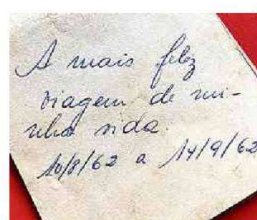 A mais feliz
viagem de mi-
nha vida.
16/8/62 a 14/9/62